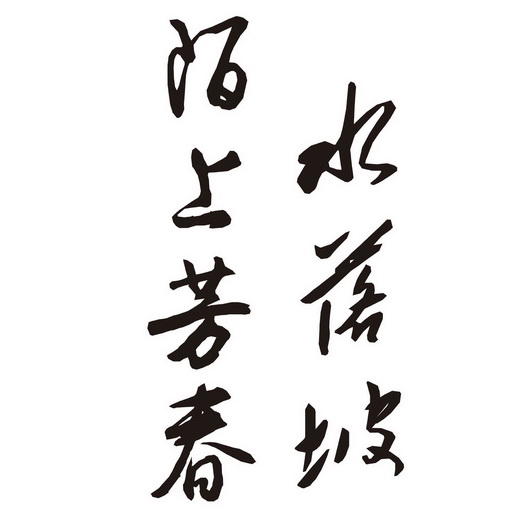 水落坡
陌上芳春